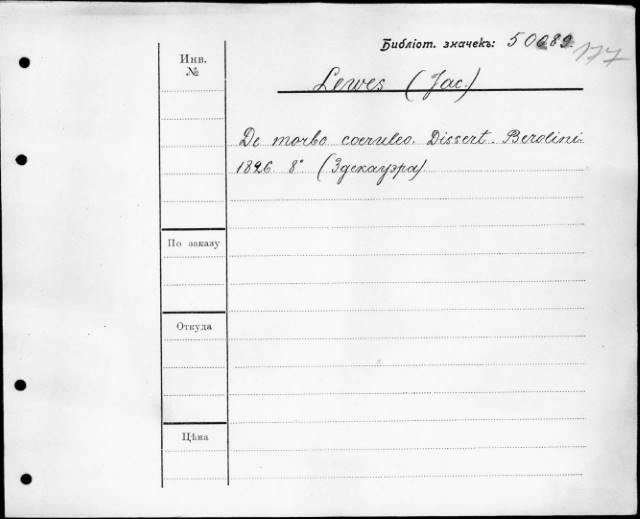 Библіот. значекъ: 50689. 177
Инв.
№
Lewes (Jac.)
De morbo coeruleo. Dissert. Berolini
1826 8° (Здекауэра)
По заказу
Откуда
Цѣна